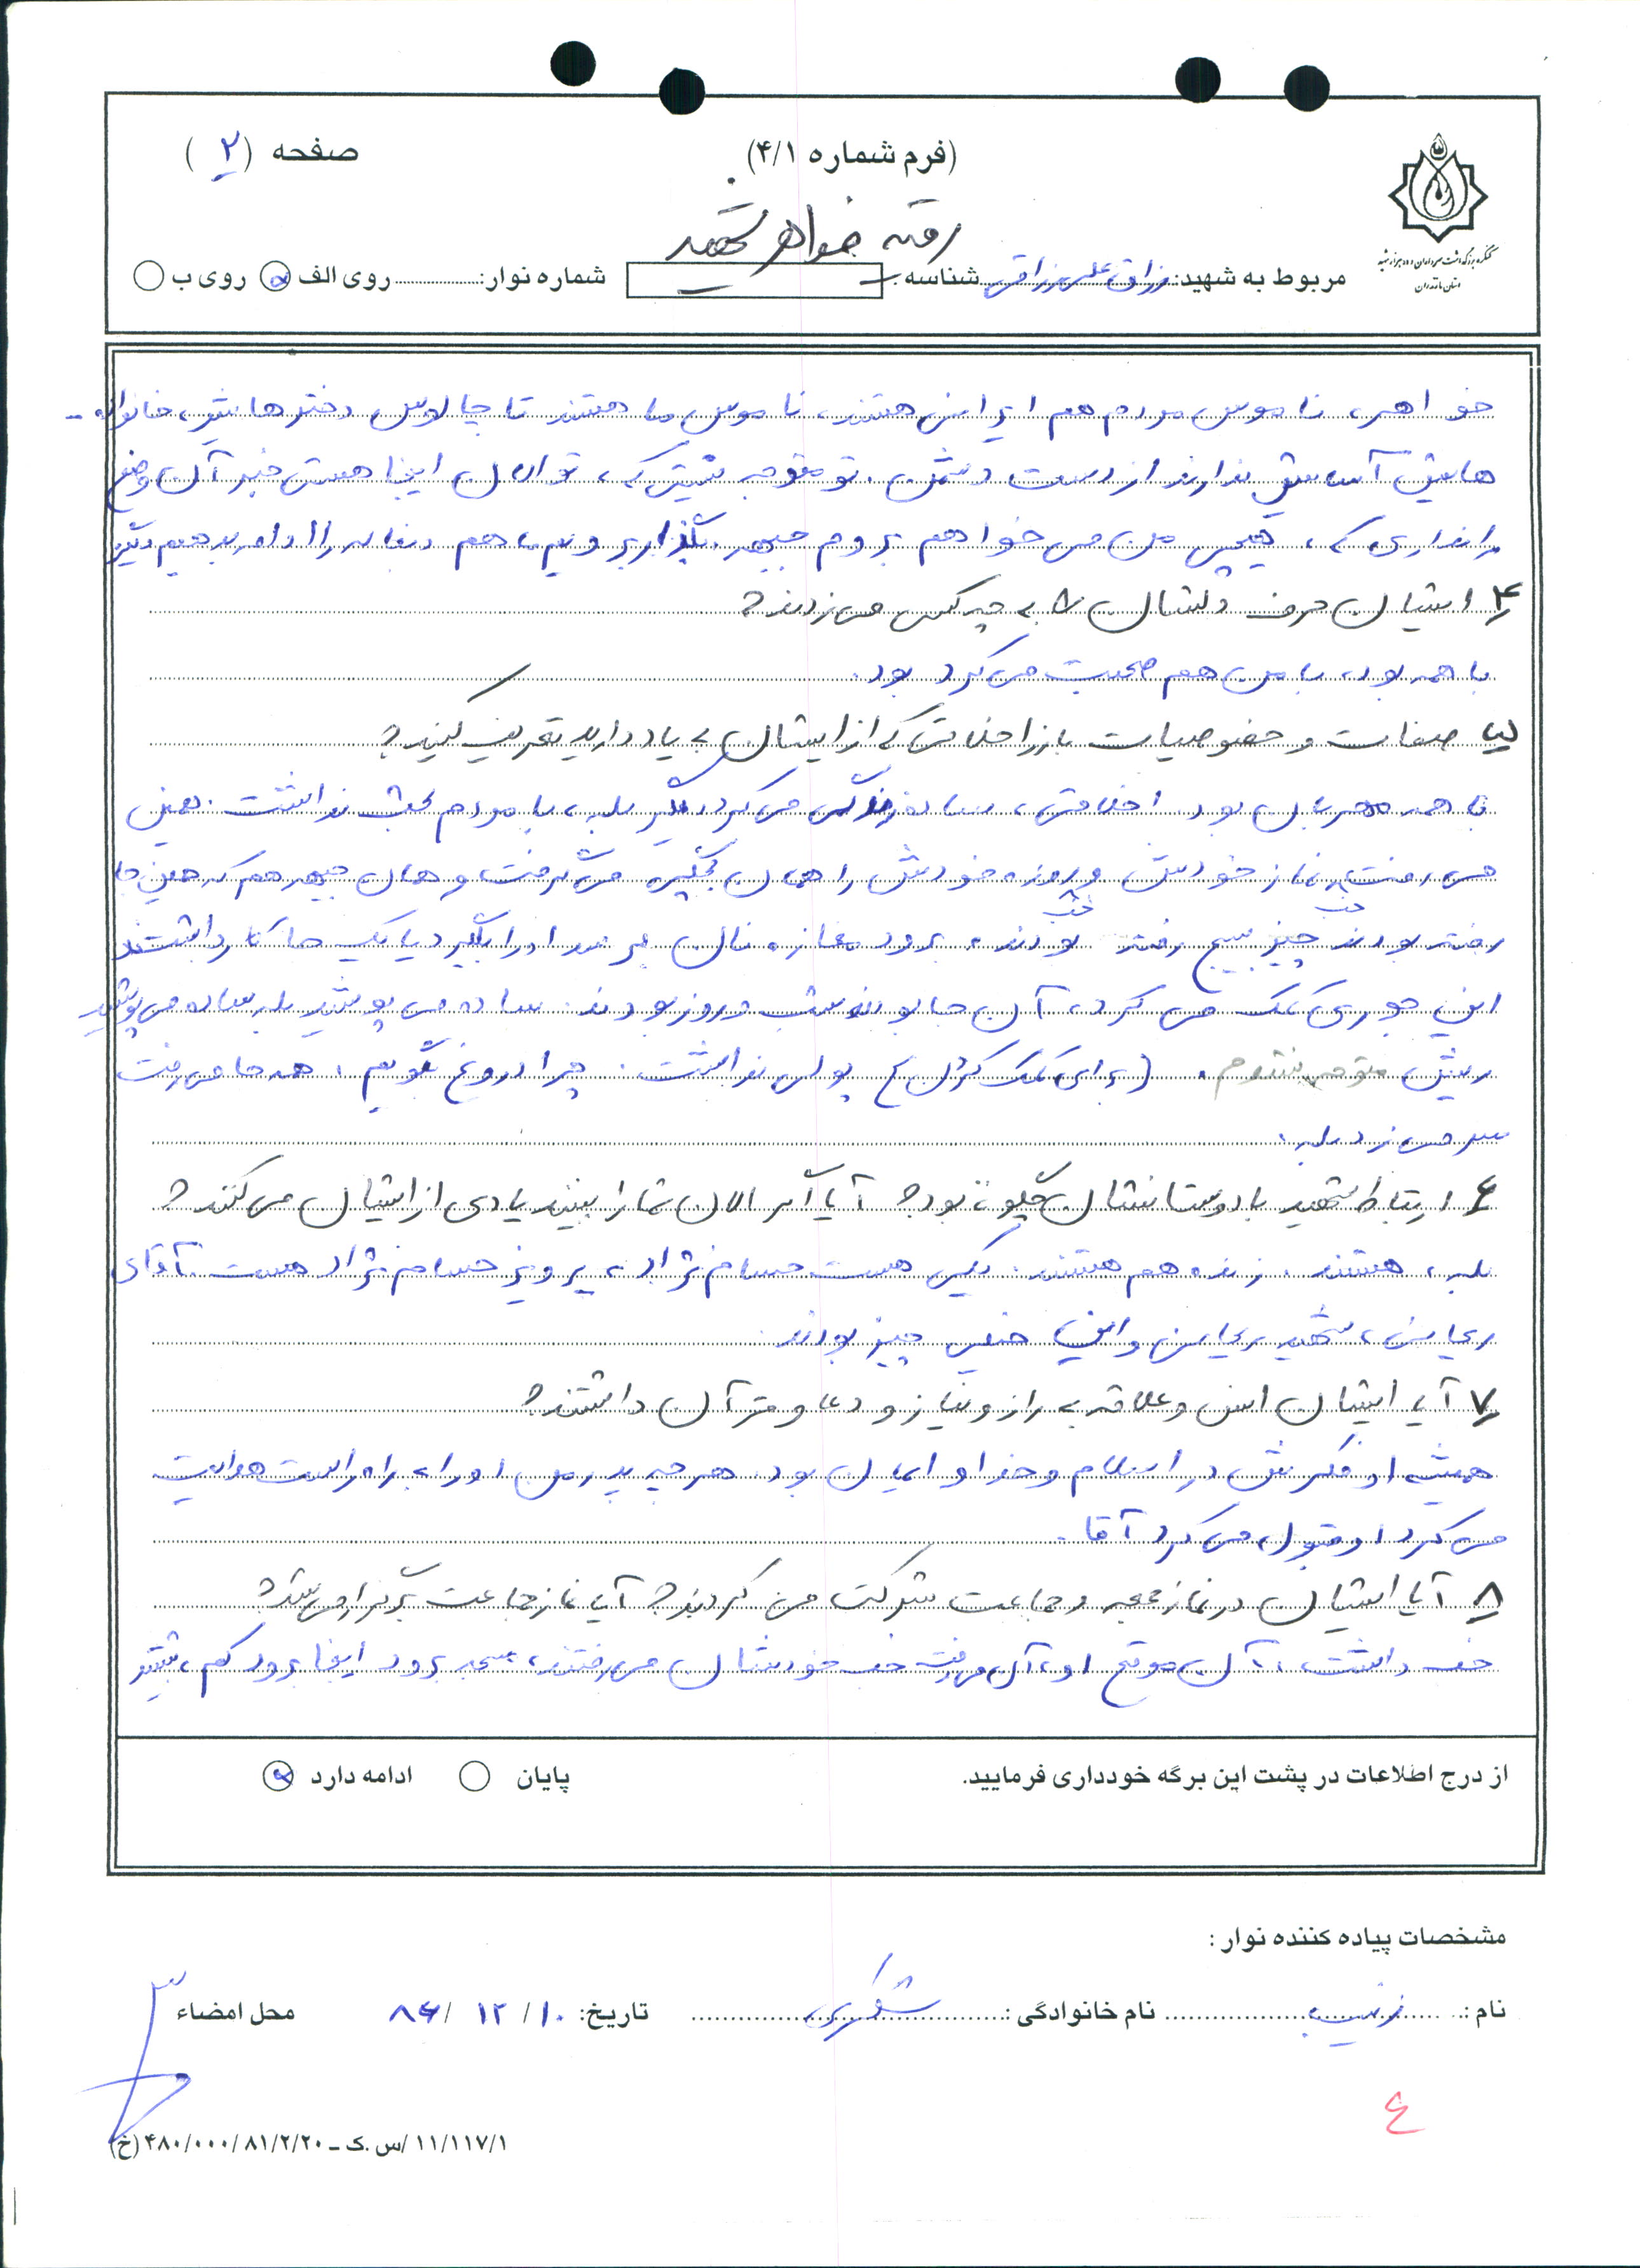 (فرم شماره ۴/۱)
صفحه (۲)
رقیه خواهر شهید
کنگره بزرگداشت سرداران و ده هزار شهید
استان مازندران
مربوط به شهید: رزاق علی رزاقی شناسه: شماره نوار: روی الف روی ب
خواهر، ناموس مردم هم ایرانی هستند، ناموس ما هستند تا چالوس دخترهایش، خانواده -
هایش آسایش ندارند از دست دشمن. تو متوجه نیستی که، تو الان اینجا هستی خبر آن وضع
را نداری که، هیچی من می خواهم بروم جبهه. بگذار برویم ما هم دفاع را ادامه بدهیم دیگر
۴ ایشان حرف دلشان را به چه کسی می زدند؟
با همه بود، با من هم صحبت می کرد بود.
۵ صفات و خصوصیات بارز اخلاقی که از ایشان به یاد دارید تعریف کنید؟
با همه مهربان بود اخلاقش، ساده زندگی می کرد دیگر بله، با مردم بحث نداشت. همین
می رفت، نماز خودش و روزه خودش را همان بچگی می گرفت و همان جبهه هم که همین جا
رفته بودند خب چیز بسیج رفته بودند خب، برود مغازه نان مردم را بگیرد یا یک جا کار داشتند
این جوری کمک می کرد، آن جا بودند شب و روز بودند. ساده می پوشید بله ساده می پوشید
ریش متوجه نشدم. (برای کمک کردن) پولی نداشت. چرا دروغ بگویم، همه جا می رفت
سر می زد بله.
۶ ارتباط شهید با دوستانشان چگونه بود؟ آیا اگر الان شما را ببینند یادی از ایشان می کنند؟
بله، هستند. زنده هم هستند. یکی هست حسام نژاد، پرویز حسام نژاد هست. آقای
ریحانی، شهید ریحانی و این خیلی چیز بودند.
۷ آیا ایشان انس و علاقه به راز و نیاز و دعا و قرآن داشتند؟
همیشه او فکرش در اسلام و خدا و ایمان بود. هر چه پدر من او را به راه راست هدایت
می کرد او قبول می کرد آقا.
۸ آیا ایشان در نماز جمعه و جماعت شرکت می کردند؟ آیا نماز جماعت برگزار می شد؟
خب داشت، آن موقع او، آن می رفت خب خودشان می رفتند، مسجد برود اینجا برود کم، بیشتر
از درج اطلاعات در پشت این برگه خودداری فرمایید.
پایان ادامه دارد
مشخصات پیاده کننده نوار :
نام : زینب نام خانوادگی : شکری تاریخ: ۱۰/ ۱۲ /۸۶ محل امضاء
۴
۱۱/۱۱۷/۱ /س.ک - ۴۸۰/۰۰۰/۸۱/۲/۲۰ (خ)